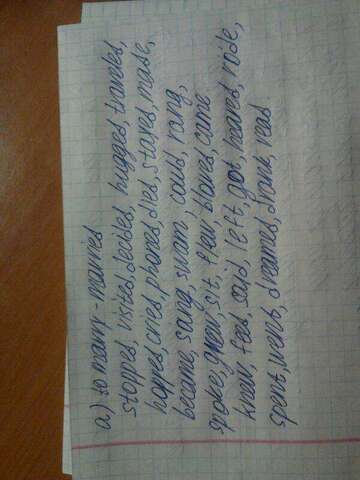 a) to marry - married
stopped, visited, decided, hugged, traveled,
hopped, cried, phoned, died, stayed, made,
became, sang, swam, could, rang,
spoke, grew, sit, flew, came
knew, feed, said, left, got, heared, rode,
spent, went, dreamed, drank, read